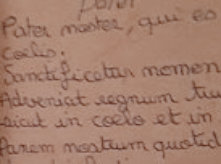 Pater
Pater noster, qui es
coelis.
Sanctificatur nomen
Adveniat regnum tu
sicut in coelo et in
Panem nostrum quotid